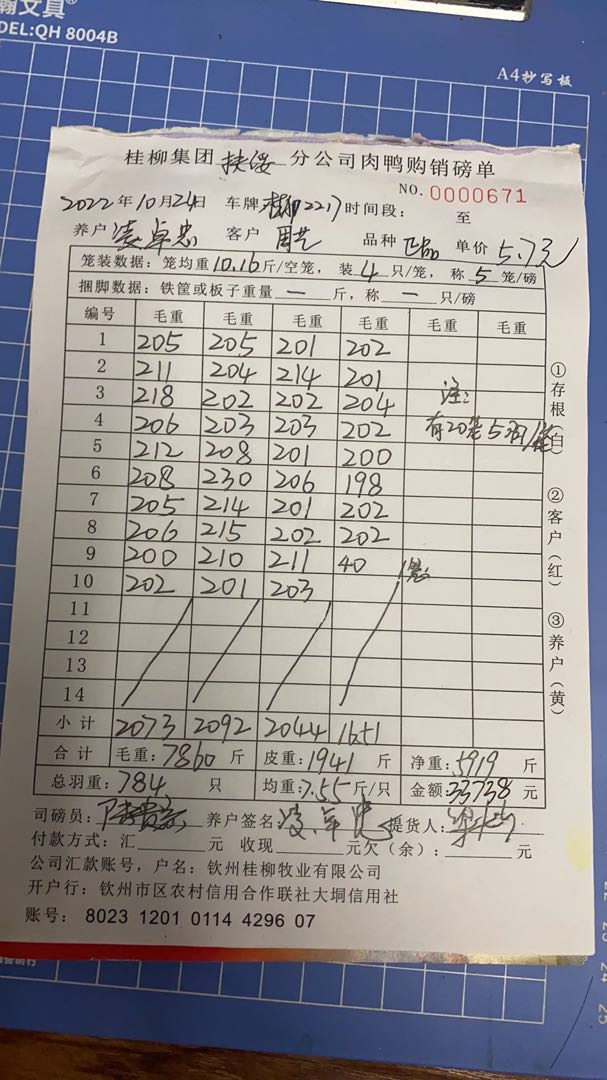 瀚文具®
DEL:QH 8004B
A4抄写板
桂柳集团 扶绥 分公司肉鸭购销磅单
NO. 0000671
2022年10月24日 车牌 桂柳2217 时间段: 至
养户 凌卓忠 客户 周艺 品种 单价 5.7元
笼装数据: 笼均重10.16斤/空笼, 装4只/笼, 称5笼/磅
捆脚数据: 铁筐或板子重量 一 斤, 称 一 只/磅
编号 毛重 毛重 毛重 毛重 毛重 毛重
1 205 205 201 202
2 211 204 214 201
3 218 202 202 204 注:
4 206 203 203 202 有20笼5只/笼
5 212 208 201 200
6 208 230 206 198
7 205 214 201 202
8 206 215 202 202
9 200 210 211 40 1笼
10 202 201 203
11
12
13
14
小计 2073 2092 2044 1651
合计 毛重: 7860 斤 皮重: 1941 斤 净重: 5919 斤
总羽重: 784 只 均重: 7.55 斤/只 金额: 33738 元
司磅员: 养户签名: 凌卓忠 提货人:
付款方式: 汇 元 收现 元欠(余): 元
公司汇款账号, 户名: 钦州桂柳牧业有限公司
开户行: 钦州市区农村信用合作联社大垌信用社
账号: 8023 1201 0114 4296 07
①存根(白)
②客户(红)
③养户(黄)
22
23
24
25